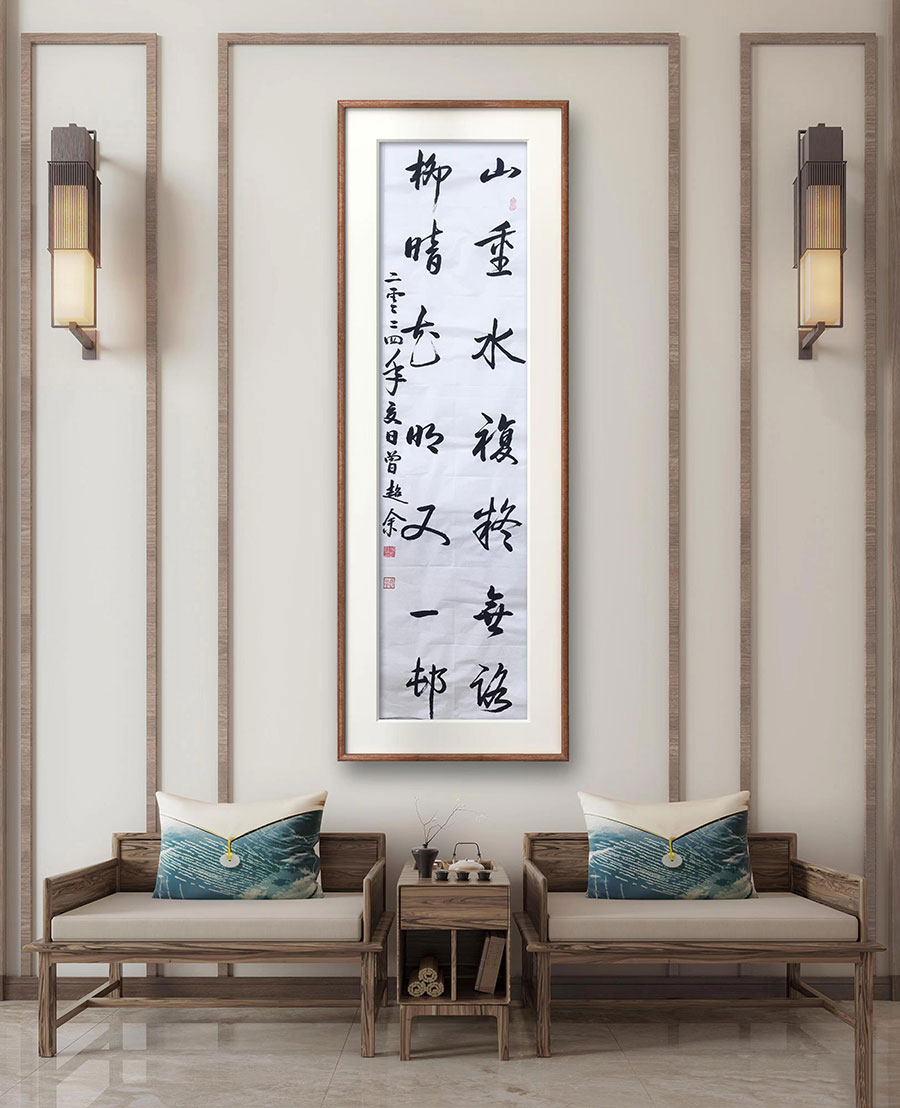 山重水複疑無路
柳晴花明又一邨
二零二四年夏日曾超余